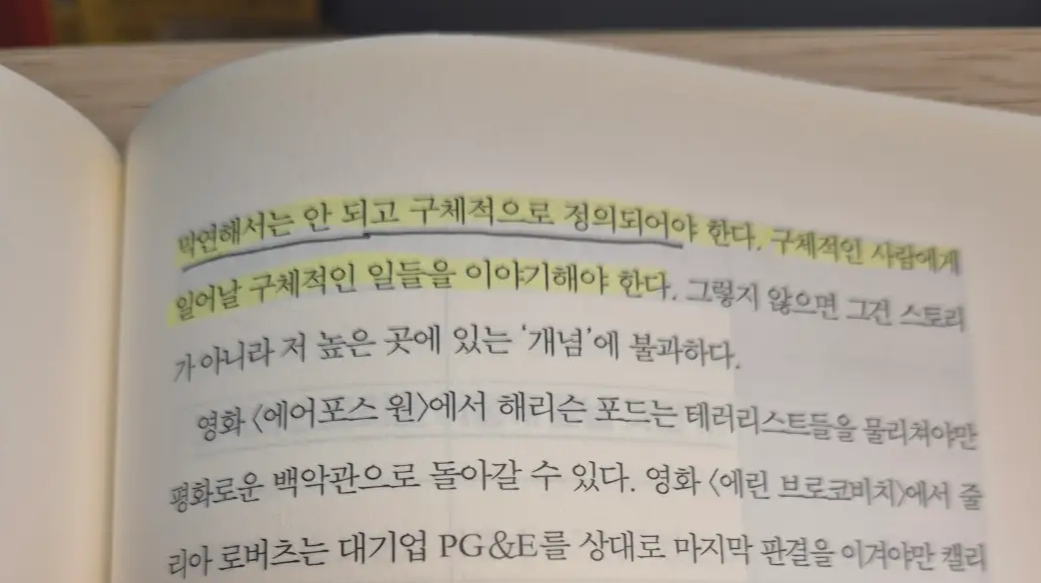 막연해서는 안 되고 구체적으로 정의되어야 한다. 구체적인 사람에게
일어날 구체적인 일들을 이야기해야 한다. 그렇지 않으면 그건 스토리
가 아니라 저 높은 곳에 있는 ‘개념’에 불과하다.
영화 〈에어포스 원〉에서 해리슨 포드는 테러리스트들을 물리쳐야만
평화로운 백악관으로 돌아갈 수 있다. 영화 〈에린 브로코비치〉에서 줄
리아 로버츠는 대기업 PG&E를 상대로 마지막 판결을 이겨야만 캘리